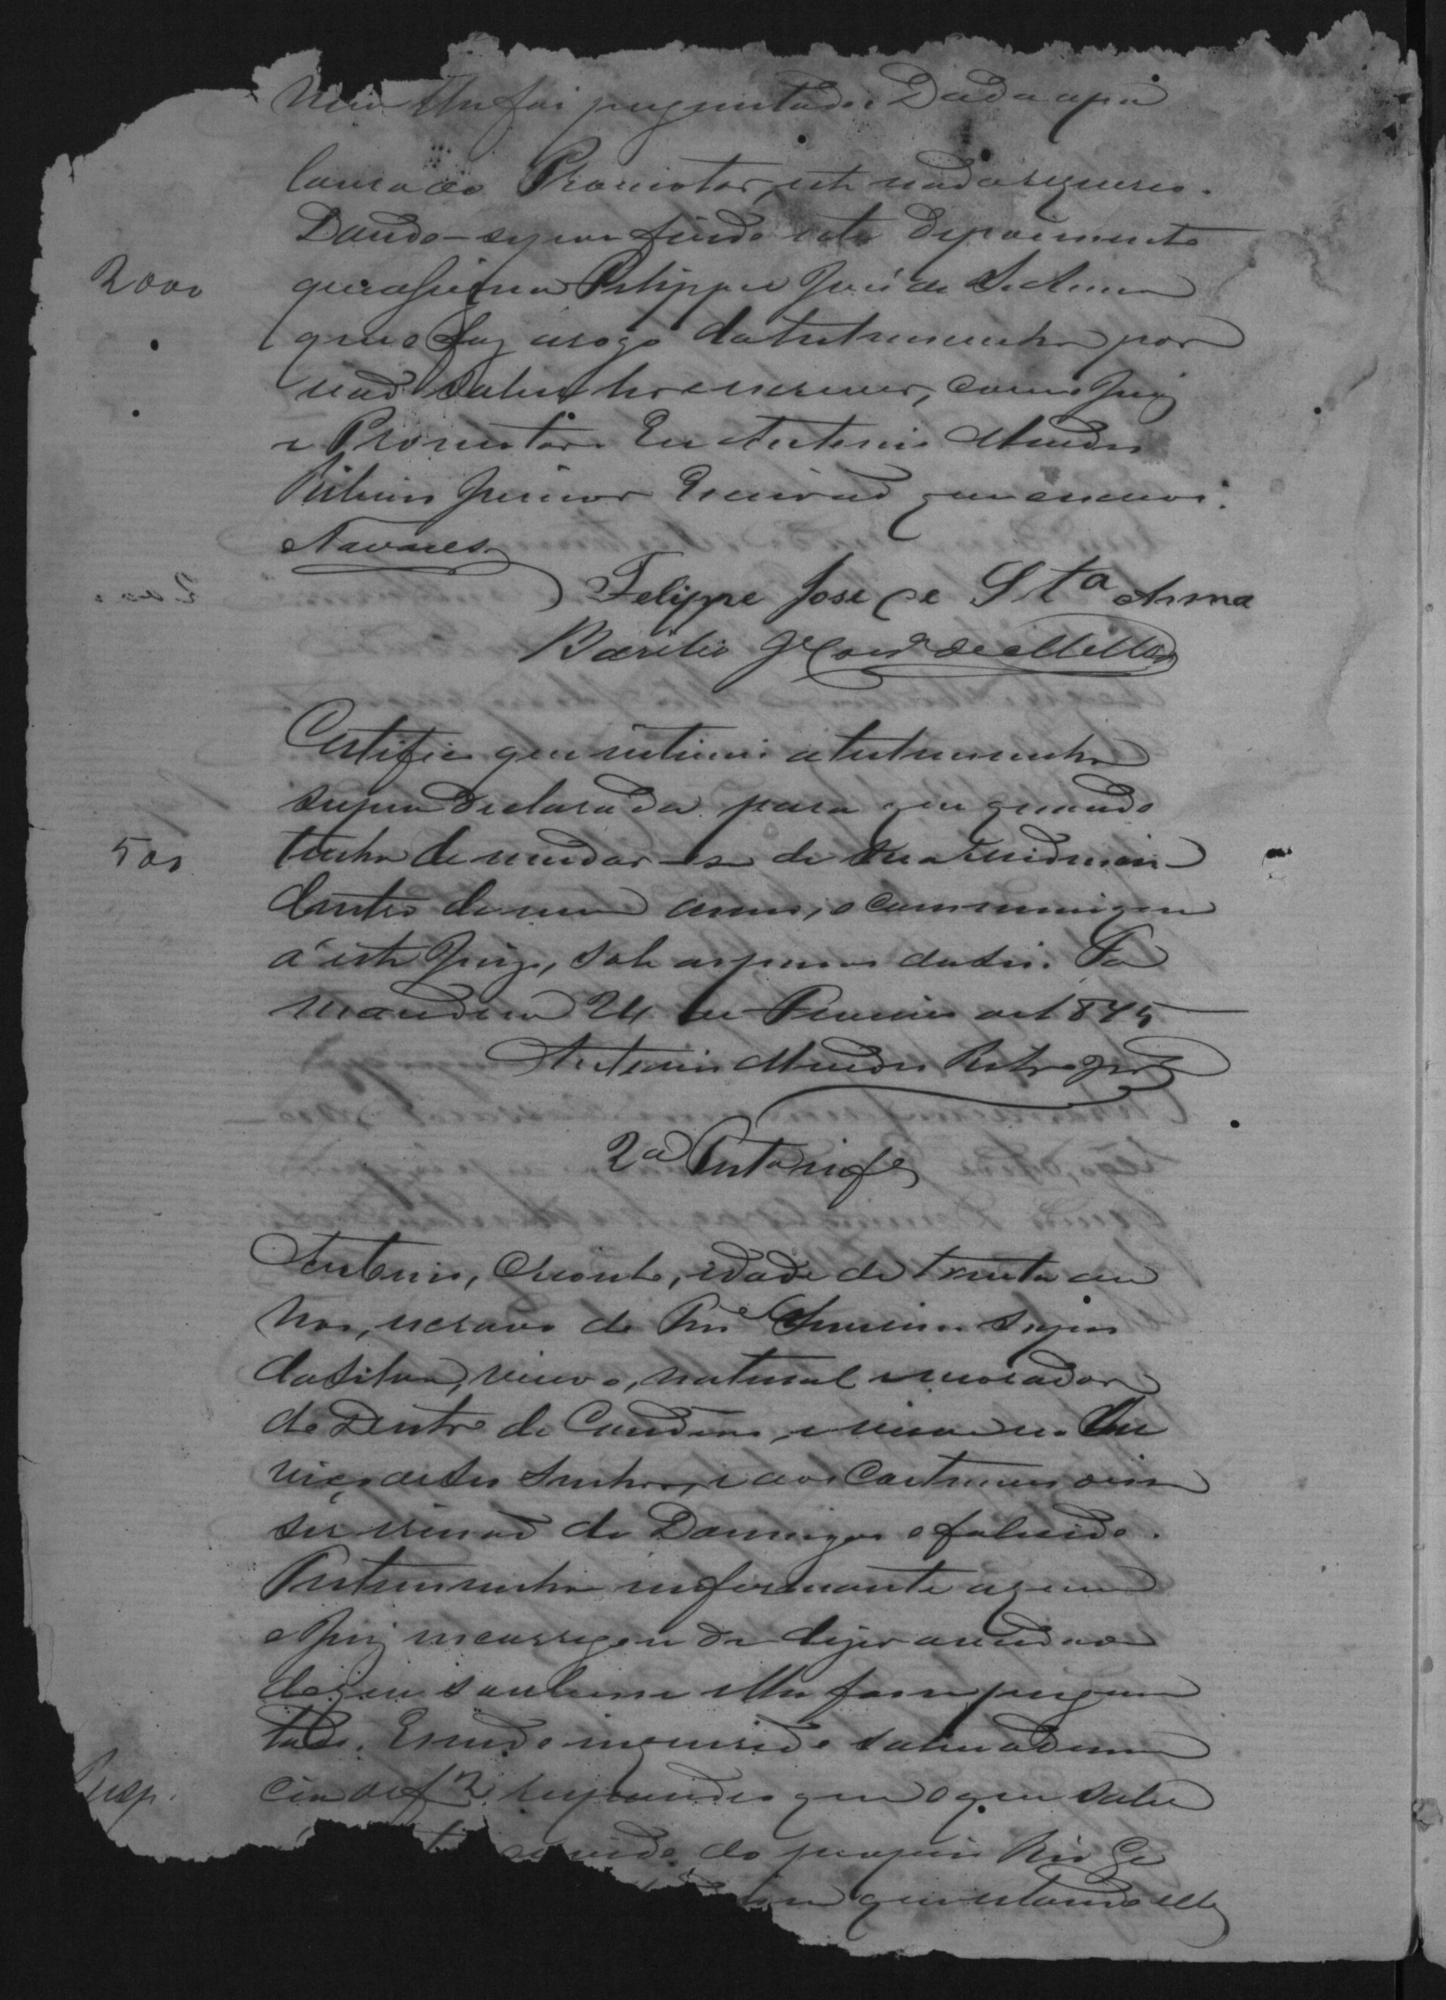 nem lhe foi perguntado. Dada apa
lavra ao Promotor, este nada requereo.
Dando-se por findo este depoimento
2000 que assigna Felippe José de St Anna
que o faz arogo datestemunha por
não saber ler e escrever, com o Juiz
e Promotor. Eu Antonio Mendes
Ribeiro Junior Escrivão que escrevi.
Navares
Felippe Jose de Sta Anna
Basilio de Mello
Certifico que intimei a testemunha
supra declarada para que quando
500 tenha de mudar-se de sua residencia
dentro de um anno, o communique
á este Juizo, sob as penas da lei.
24 de 1875
Antonio Mendes Ribro Jor
2a
Antonio, Crioulo, idade de trinta an
nos, escravo de
da Silva, viuvo, natural e morador
de Dentro de e vive no ser
viço de seu Senhor, e aos Costumes disse
ser irmão de Domingos o falecido.
Testemunha informante a quem
o Juiz encarregou de dizer a verdade
do que soubesse e lhe fosse pergun
tado. E sendo inquirido sobre a denun
Resp. cia de f 2 respondeo que o que sabe
ouvido do proprio Réo
que estando elle